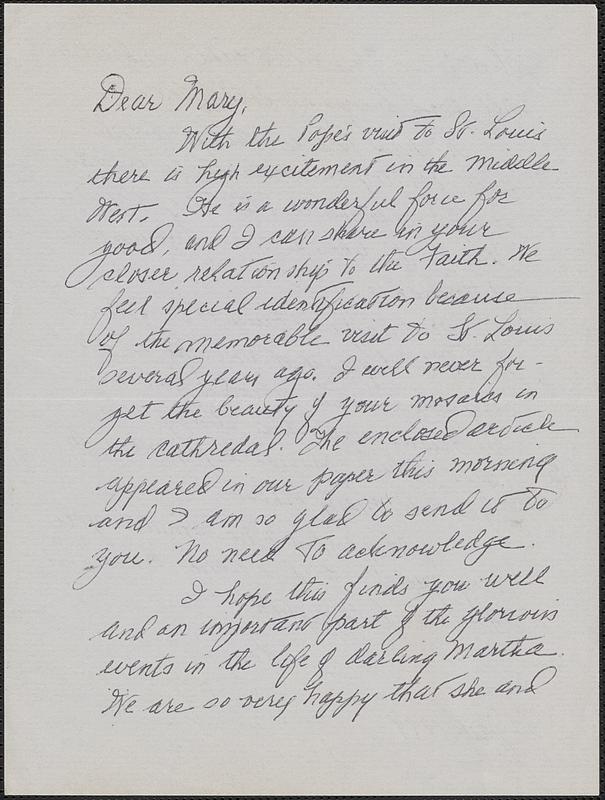 Dear Mary,
With the Pope's visit to St. Louis
there is high excitement in the Middle
West. He is a wonderful force for
good, and I can share in your
closer relationship to the Faith. We
feel special identification because
of the memorable visit to St. Louis
several years ago. I will never for-
get the beauty of your mosaics in
the cathredal. The enclosed article
appeared in our paper this morning
and I am so glad to send it to
you. No need to acknowledge.
I hope this finds you well
and an important part of the glorious
events in the life of darling Martha.
We are so very happy that she and